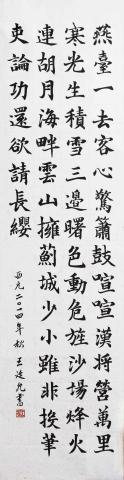 燕臺一去客心驚簫鼓喧喧漢將營萬里
寒光生積雪三邊曙色動危旌沙場烽火
連胡月海畔雲山擁薊城少小雖非投筆
吏論功還欲請長纓
西元二〇一四年秋 王廷允書